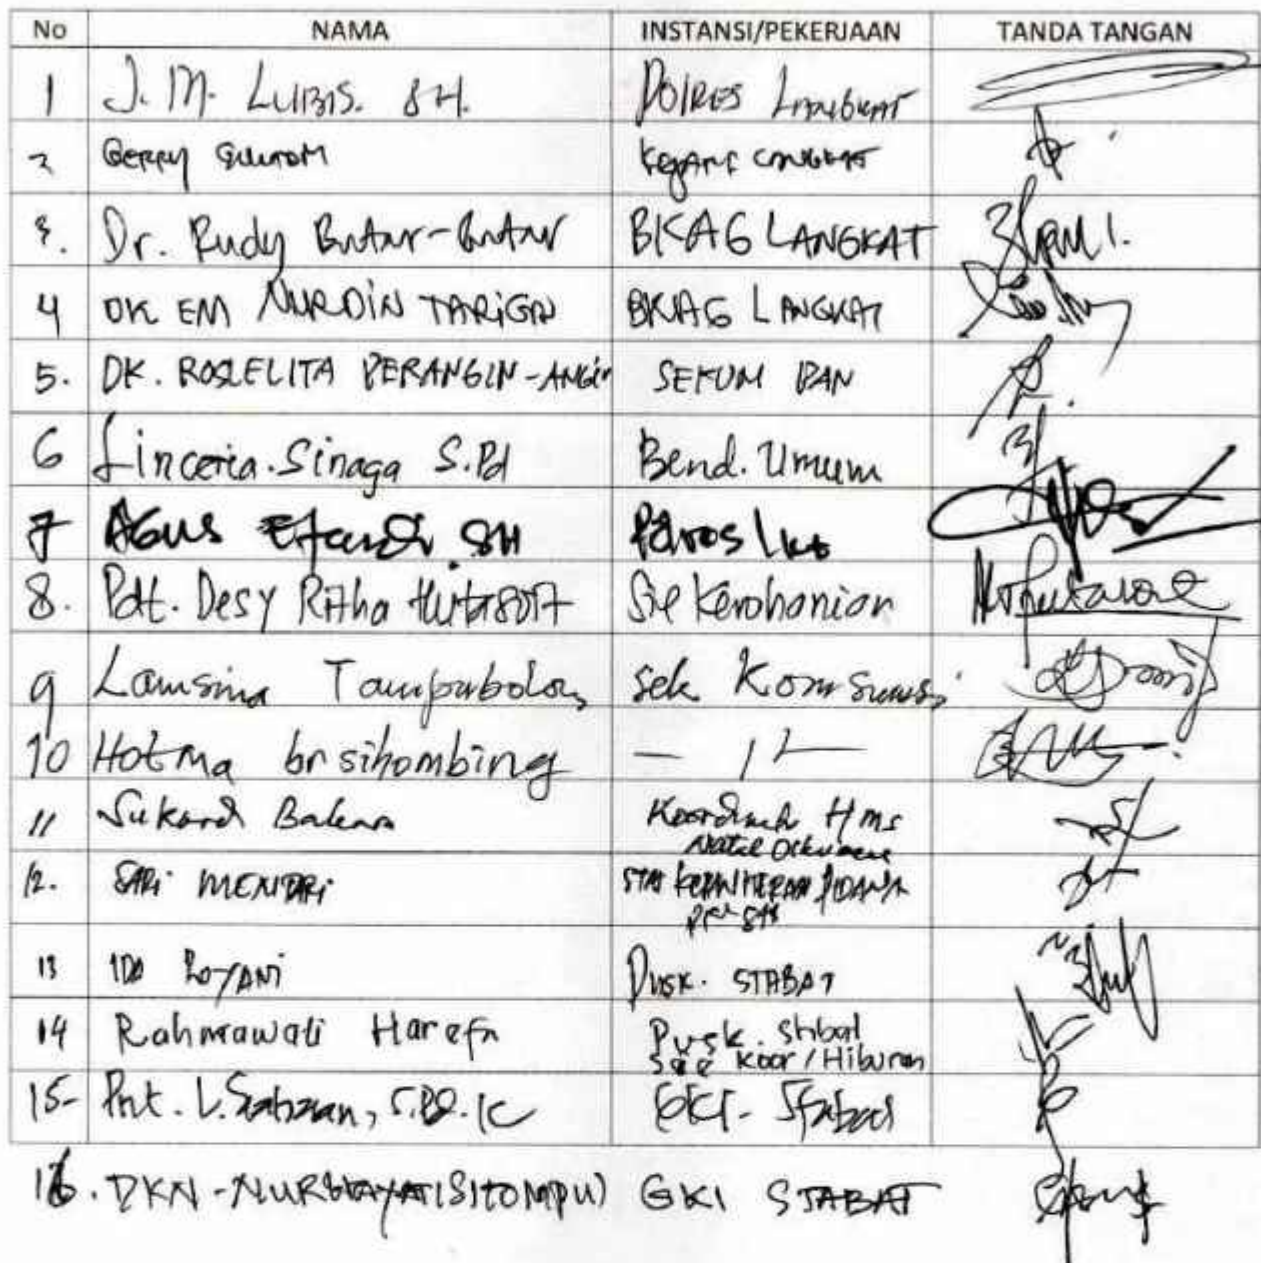 No NAMA INSTANSI/PEKERJAAN TANDA TANGAN
1 J. M. LUBIS. SH. POLRES LANGKAT
2 GERRY LANGKAT
3. Dr. Rudy Butar-Butar BKAG LANGKAT
4 DK EM NURDIN TARIGAN BKAG LANGKAT
5. DK. ROSLELITA PERANGIN-ANGIN SEKUM PAN
6 Linceria. Sinaga S.Pd Bend. Umum
7 AGUS Efandi SH
8. Pdt. Desy Ritha Hutasoit Sie Kerohanian
9 Lamsina Tampubolon sek Komsumsi
10 Hotma br sihombing — 11 —
11 Sukardi Hms
12. SARI MENTARI KEPANITERAAN PIDANA
13 IDA ROYANI Pusk. STABAT
14 Rahmawati Harefa Pusk. Stabat
Sie Koor/Hiburan
15- Pnt. L. S.Pd.K GKI - Stabat
16. DKN - NURHAYATI SITOMPUL GKI STABAT